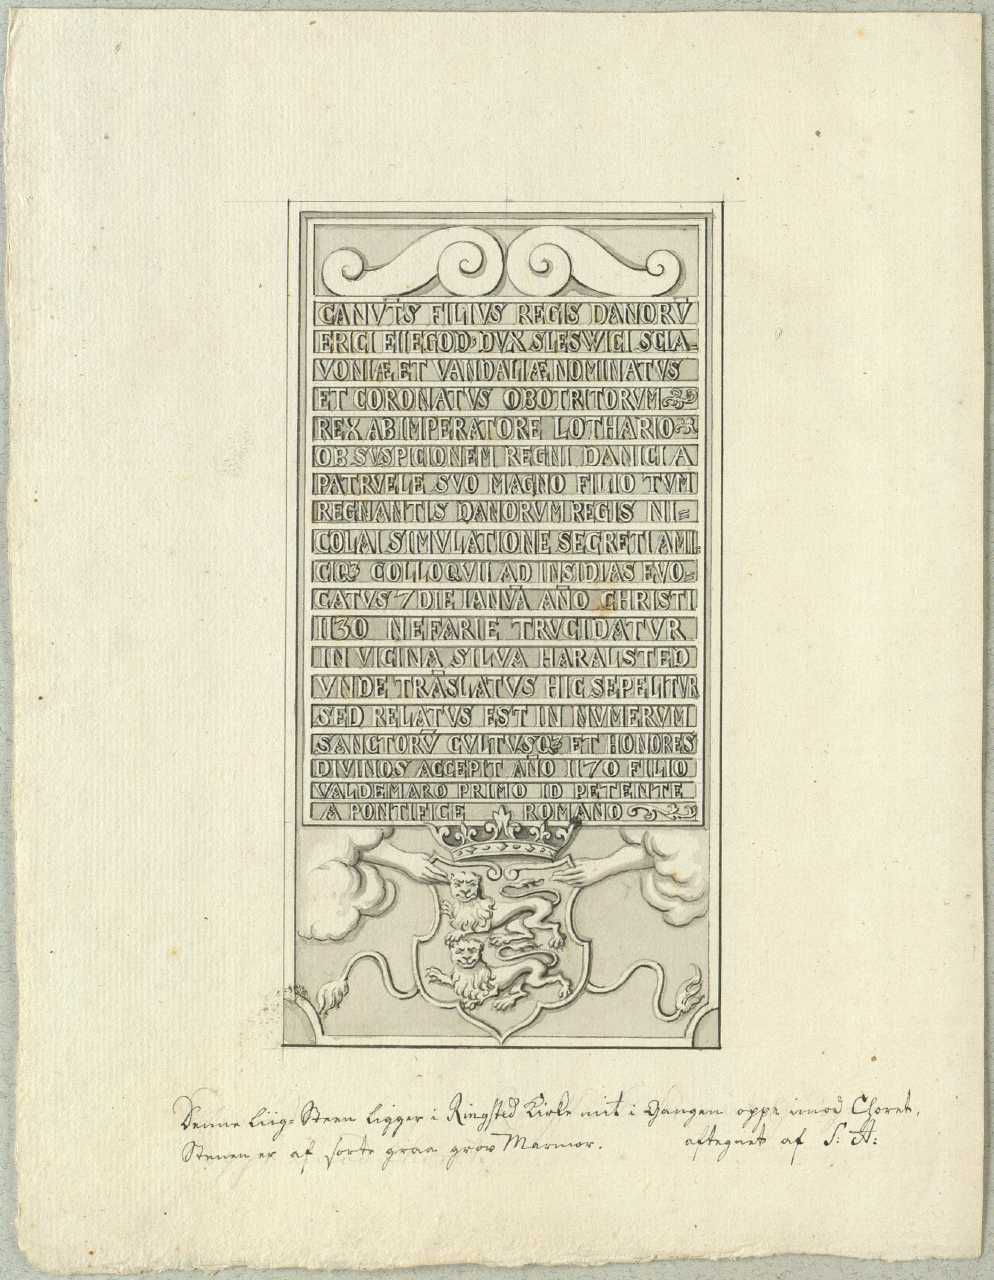 CANVTS FILIVS REGIS DANORṼ
ERICI EIEGOD: DVX SLESWICI SCLA=
VONIÆ ET VANDALIÆ NOMINATVS
ET CORONATVS OBOTRITORVM
REX AB IMPERATORE LOTHARIO
OB SVSPICIONEM REGNI DANICI A
PATRVELE SVO MAGNO FILIO TVM
REGNANTIS DANORVM REGIS NI=
COLAI SIMVLATIONE SEGRETI AMI=
CIQꝫ COLLOQVII AD INSIDIAS EVO=
CATVS 7 DIE IANVÃ AÑO CHRISTI
1130 NEFARIE TRVCIDATVR
IN VICINA SILVA HARALSTED
VNDE TRÃSLATVS HIC SEPELITVR
SED RELATVS EST IN NVMERVM
SANCTORṼ CVLTVSQꝫ ET HONORES
DIVINOS ACCEPIT AÑO 1170 FILIO
VALDEMARO PRIMO ID PETENTE
A PONTIFICE ROMANO
Denne Liig=Steen ligger i Ringsted Kirke mit i Gangen oppe imod Choret,
Stenen er af sorte graa grov Marmor. aftegnet af S: A: